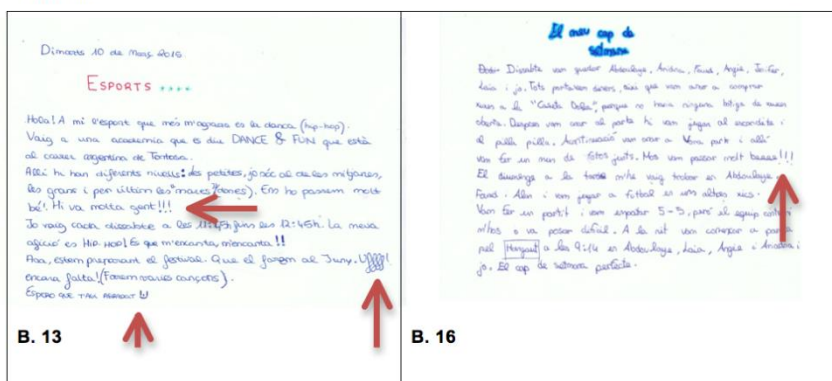 Dimarts 10 de Març 2015
ESPORTS ....
Hola! A mi l'esport que més m'agrada es la dança (hip-hop).
Vaig a una academia que es diu DANCE & FUN que està
al carrer argentina de Tortosa.
Allí hi han diferents nivells: les petites, jo sóc al de les mitjanes,
les grans i per últim les "mares" (dones). Ens ho passem molt
bé! Hi va molta gent!!!
Jo vaig cada dissabte a les 11:15h fins les 12:45h. La meva
afició es HIP HOP! Es que m'encanta, m'encanta!!
Ara, estem preparant el festival. Que el farem al Juny. Uffff!
encara falta! (Farem varies cançons).
ESPERO QUE T'HAGI AGRADAT
B. 13
El meu cap de
setmana
Dissabte vam quedar Abdoulaye, Andrea, Fouad, Angie, Jenifer,
Laia i jo. Tots portavem diners, així que vam anar a comprar
a la "Casa Dolça", perque no havia ninguna botiga de
oberta. Despres vam anar al parke hi vam jugar al escondite i
el pilla pilla. vam anar a part i allí
vam fer un munt de fotos junts. Mos vam passar molt !!!
El diumenge a la tarde m'he vaig trobar en Abdoulaye,
Fouad i i vam jugar a futbol en uns altres xics.
Vam fer un partit i vam empatar 5-5, però al equip
mhos va passar . A la nit vam començar a parlar
pel Hangout a les 9:14 en Abdoulaye, Laia, Angie i Andrea i
jo. El cap de setmana perfecte.
B. 16